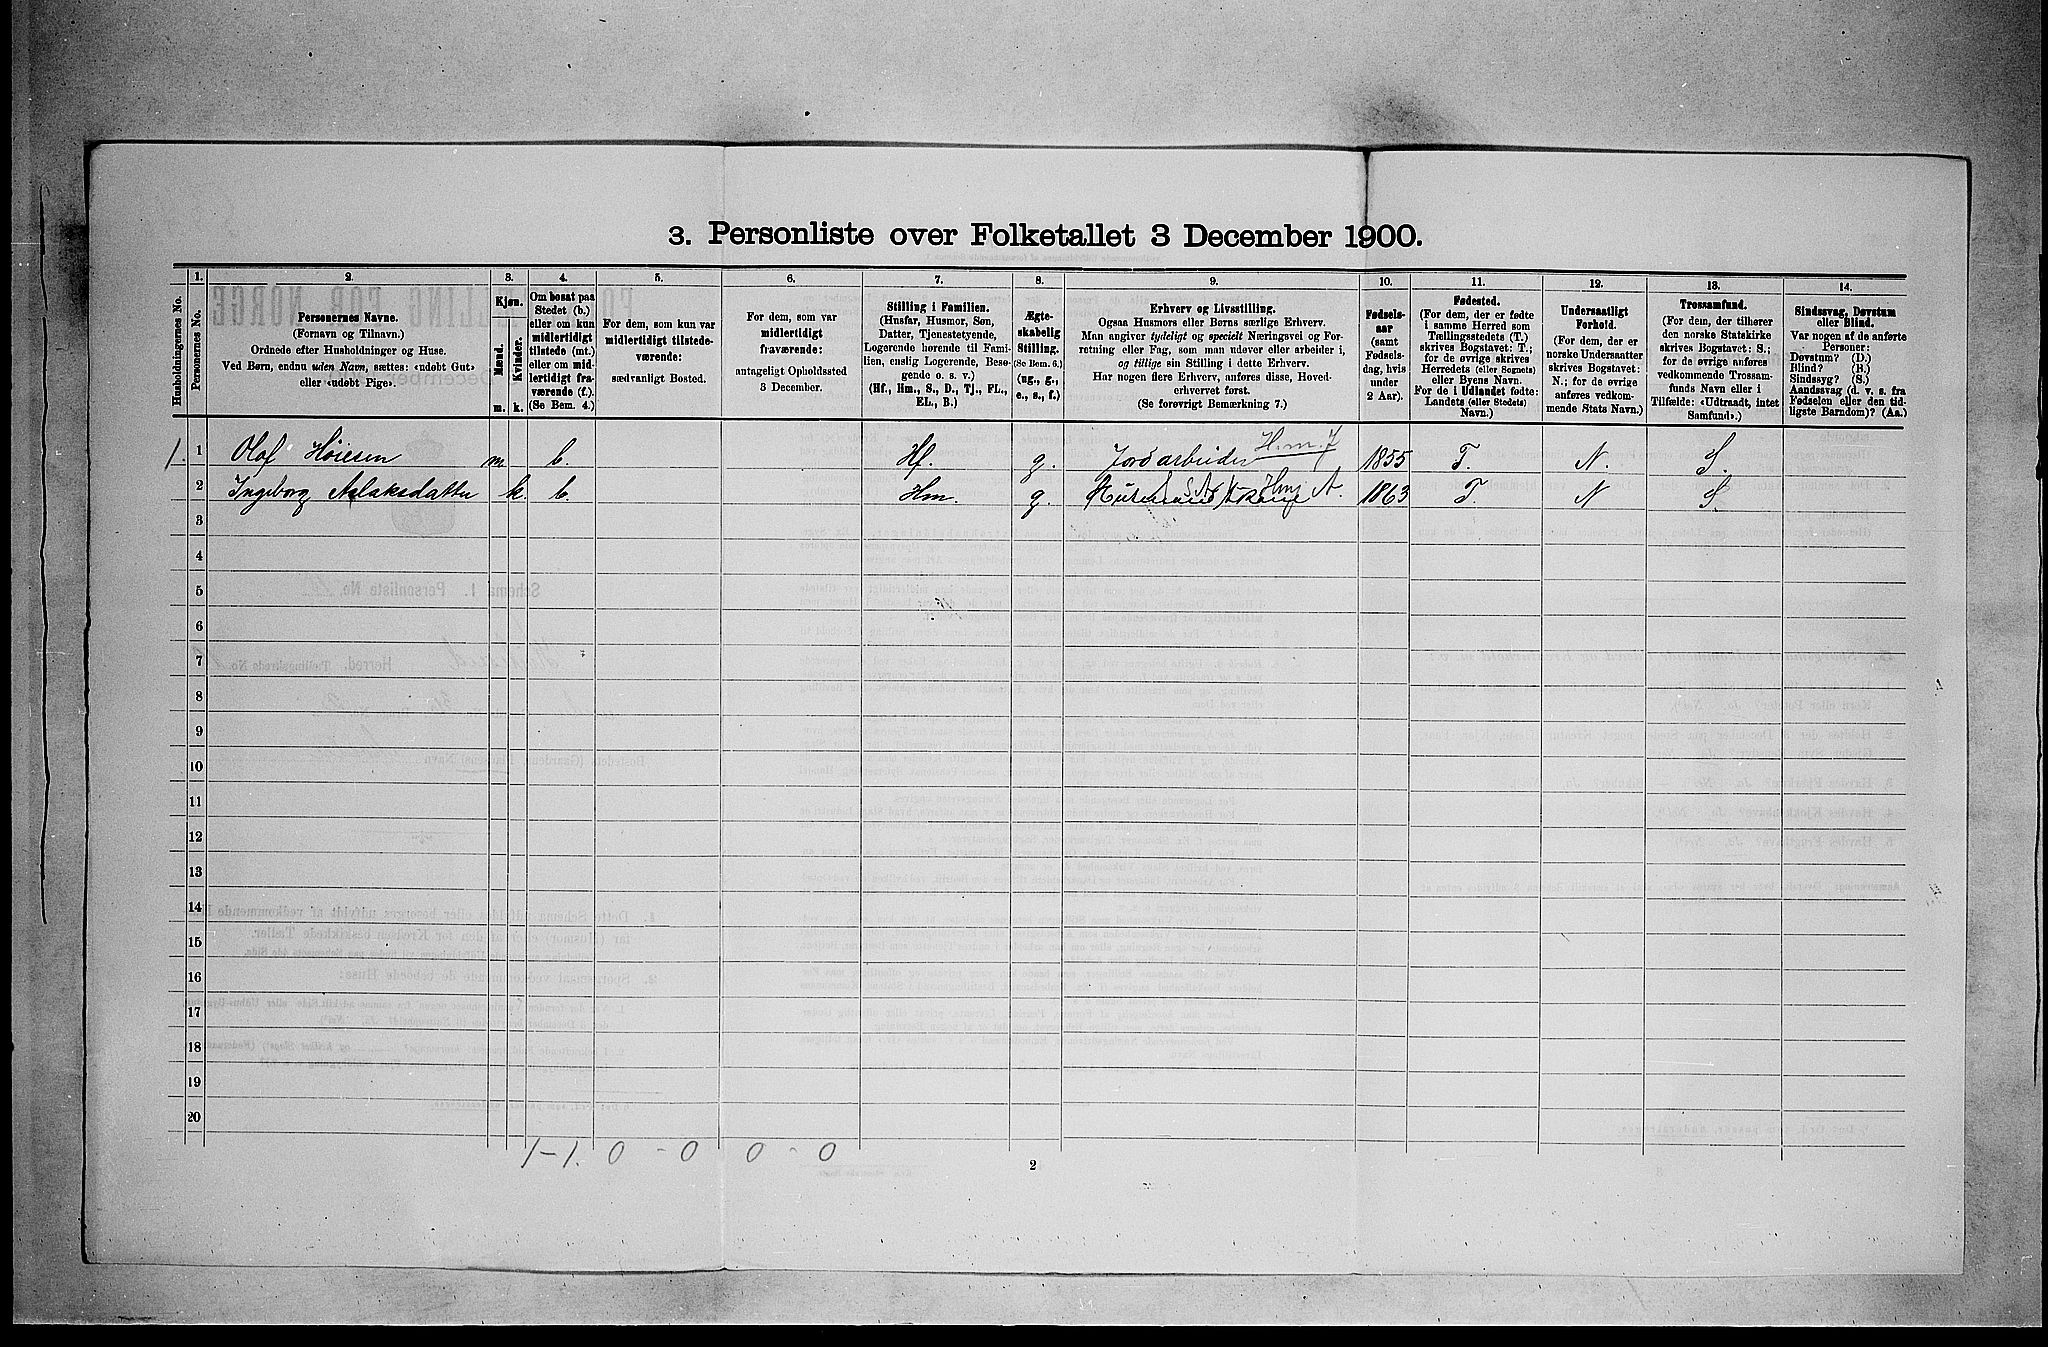 3. Personliste over Folketallet 3 December 1900.
Husholdningernes No.
1.
Personernes No.
2.
Personernes Navne.
(Fornavn og Tilnavn.)
Ordnede efter Husholdninger og Huse.
Ved Børn, endnu uden Navn, sættes: «udøbt Gut»
eller «udøbt Pige».
3.
Kjøn.
Mænd.
Kvinder.
m. k.
4.
Om bosat paa
Stedet (b.)
eller om kun
midlertidigt
tilstede (mt.)
eller om mid-
lertidigt fra-
værende (f.).
(Se Bem. 4.)
5.
For dem, som kun var
midlertidigt tilstede-
værende:
sædvanligt Bosted.
6.
For dem, som var
midlertidigt
fraværende:
antageligt Opholdssted
3 December.
7.
Stilling i Familien.
(Husfar, Husmor, Søn,
Datter, Tjenestetyende,
Logerende hørende til Fami-
lien, enslig Logerende, Besø-
gende o. s. v.)
(Hf., Hm., S., D., Tj., FL.,
EL., B.)
8.
Ægte-
skabelig
Stilling.
(Se Bem. 6.)
(ug., g.,
e., s., f.)
9.
Erhverv og Livsstilling.
Ogsaa Husmors eller Børns særlige Erhverv.
Man angiver tydeligt og specielt Næringsvei og For-
retning eller Fag, som man udøver eller arbeider i,
og tillige sin Stilling i dette Erhverv.
Har nogen flere Erhverv, anføres disse, Hoved-
erhvervet først.
(Se forøvrigt Bemærkning 7.)
10.
Fødsels-
aar
(samt
Fødsels-
dag, hvis
under
2 Aar).
11.
Fødested.
(For dem, der er fødte
i samme Herred som
Tællingsstedets (T.)
skrives Bogstavet: T.;
for de øvrige skrives
Herredets (eller Sognets)
eller Byens Navn.
For de i Udlandet fødte:
Landets (eller Stedets)
Navn.)
12.
Undersaatligt
Forhold.
(For dem, der er
norske Undersaatter
skrives Bogstavet:
N.; for de øvrige
anføres vedkom-
mende Stats Navn.)
13.
Trossamfund.
(For dem, der tilhører
den norske Statskirke
skrives Bogstavet: S.;
for de øvrige anføres
vedkommende Trossam-
funds Navn eller i
Tilfælde: «Udtraadt, intet
Samfund».)
14.
Sindssvag, Døvstum
eller Blind.
Var nogen af de anførte
Personer:
Døvstum? (D.)
Blind? (B.)
Sindssyg? (S.)
Aandssvag (d. v. s. fra
Fødselen eller den tid-
ligste Barndom)? (Aa.)
1. 1 Olaf Høiesen m. b. Hf. g. Jordarbeider H.m.J 1855 T. N. S.
2 Ingeborg Aslaksdatter k. b. Hm. g. A. 1863 T. N S.
3
4
5
6
7
8
9
10
11
12
13
14
15
16
17
18
19
20
1-1. 0 - 0 0 - 0
2